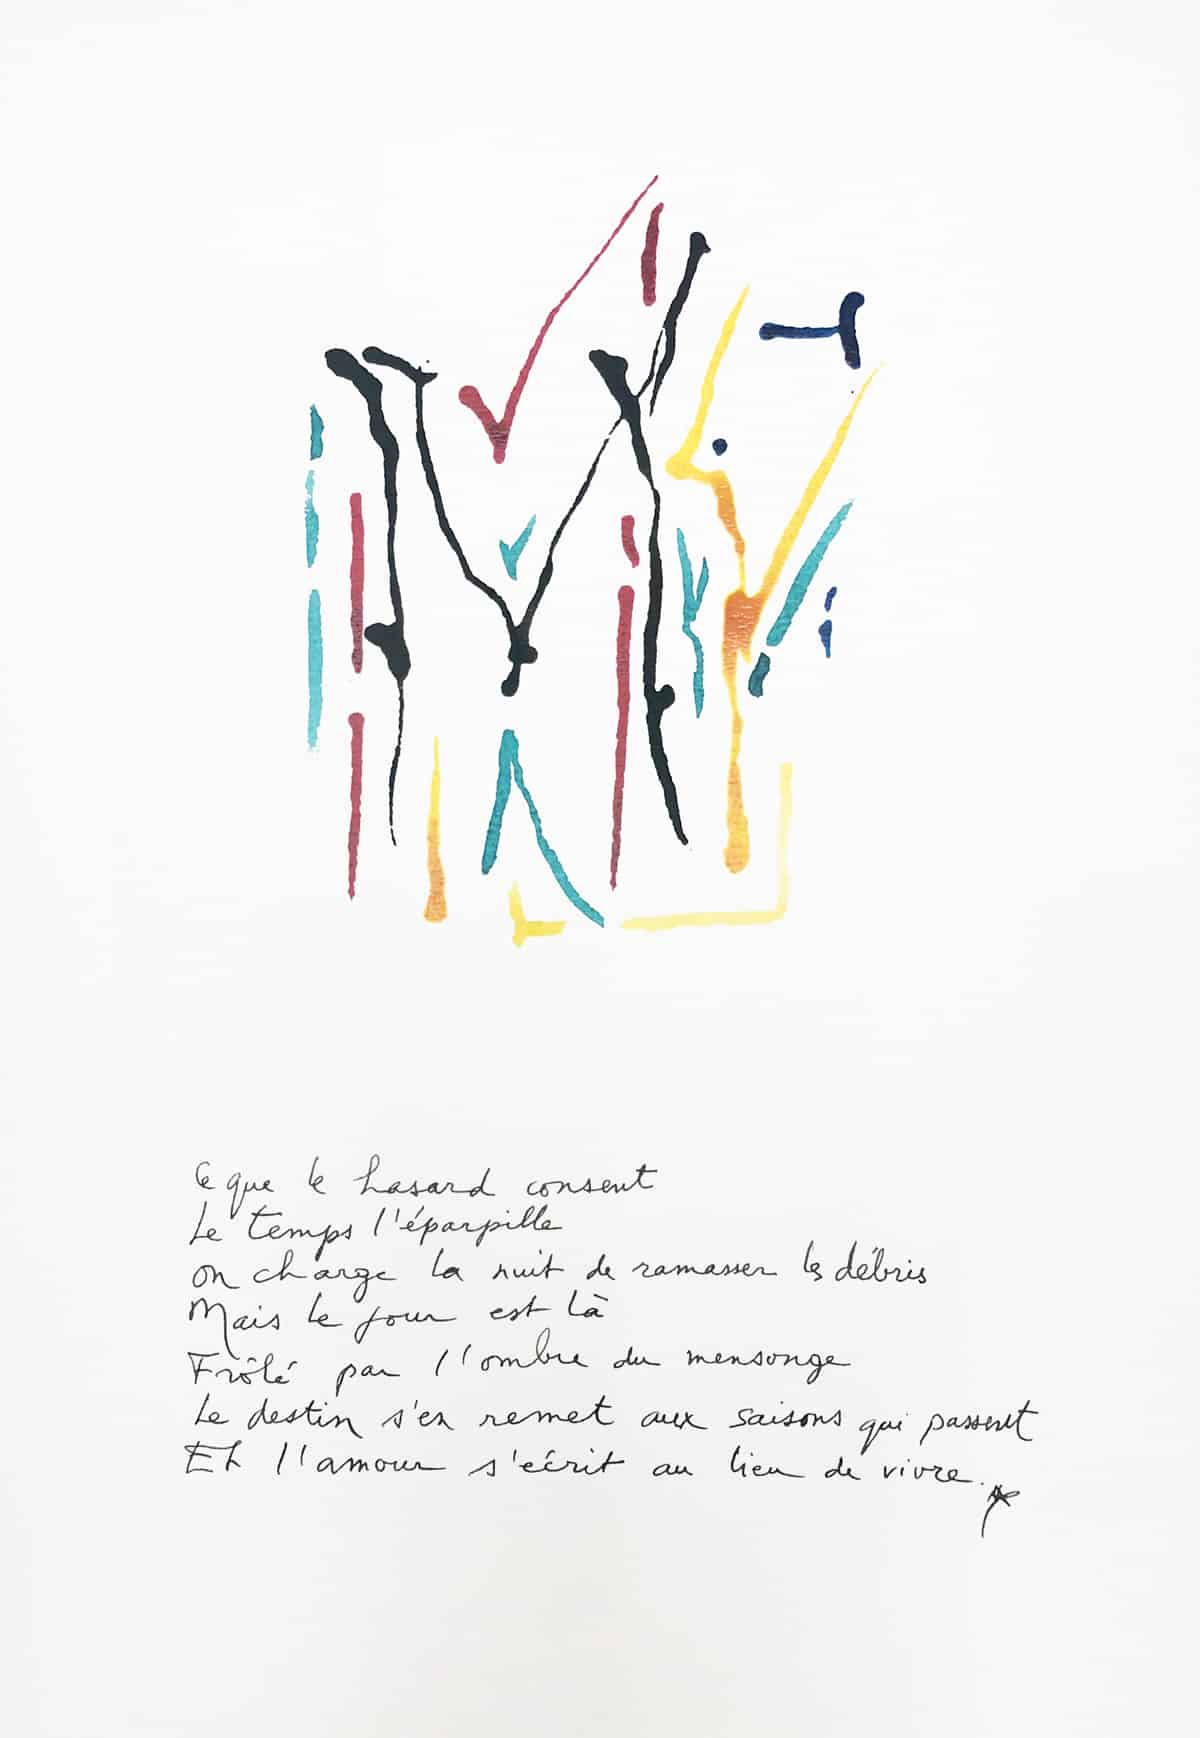 Ce que le hasard consent
Le temps l'éparpille
on charge la nuit de ramasser les débris
Mais le jour est là
Frôlé par l'ombre du mensonge
Le destin s'en remet aux saisons qui passent
Et l'amour s'écrit au lieu de vivre.